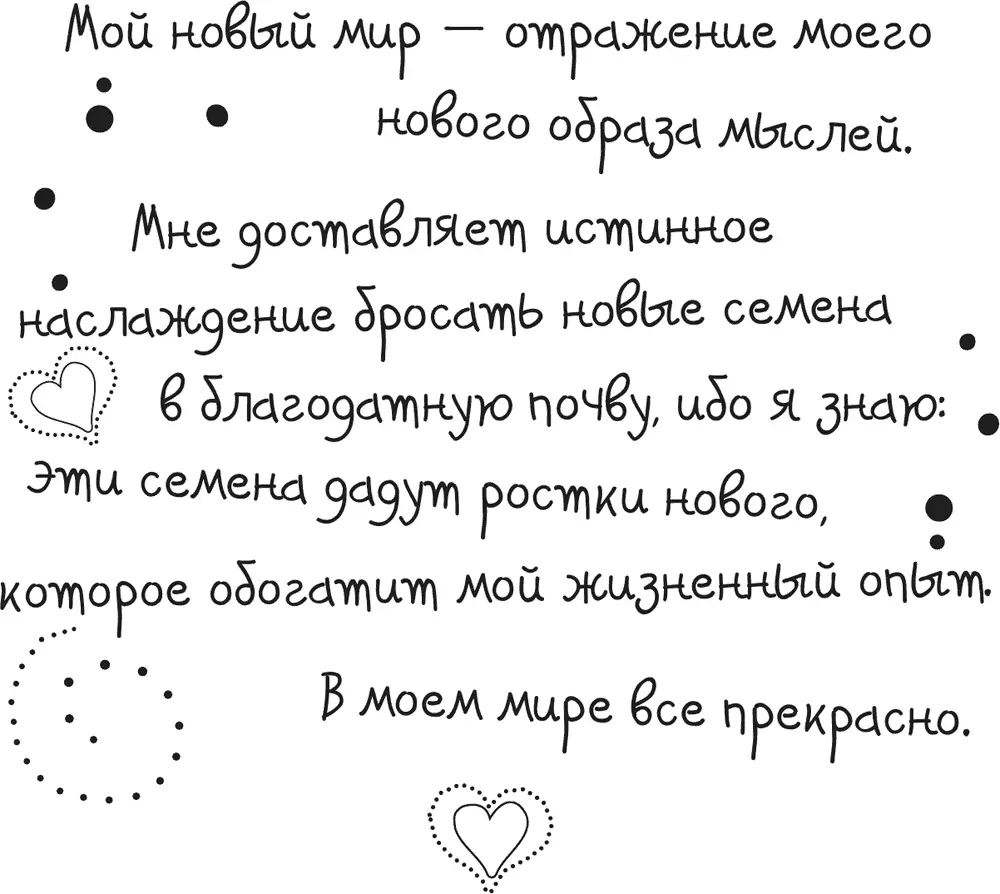 Мой новый мир — отражение моего
нового образа мыслей.
Мне доставляет истинное
наслаждение бросать новые семена
в благодатную почву, ибо я знаю:
эти семена дадут ростки нового,
которое обогатит мой жизненный опыт.
В моем мире все прекрасно.